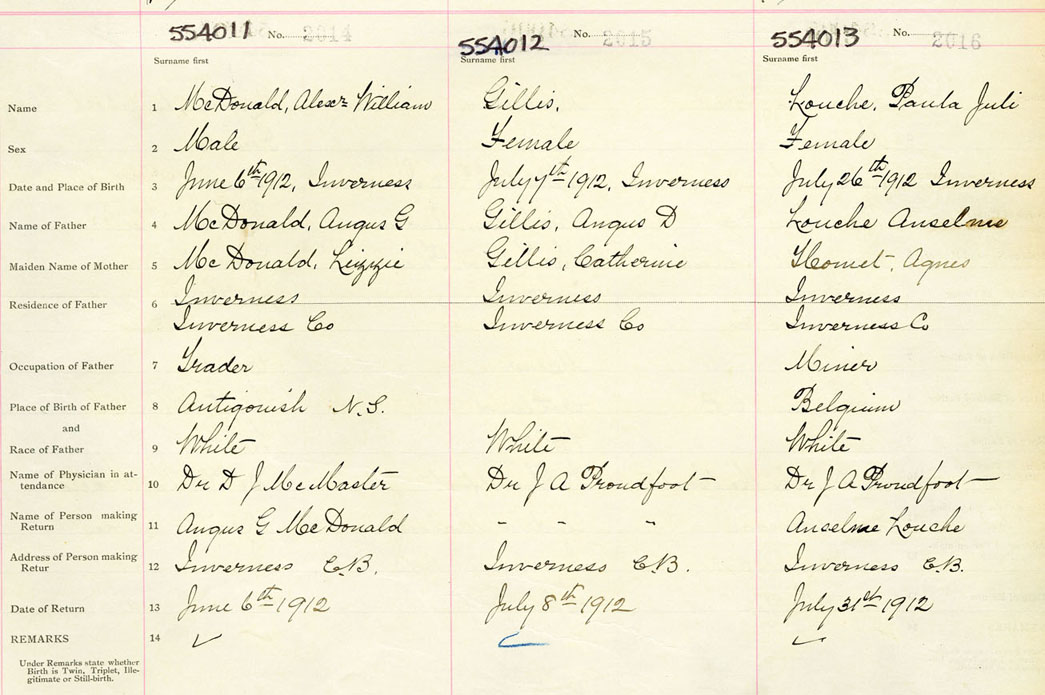 554011 No. 2014
554012 No. 2015
554013 No. 2016
Surname first
Surname first
Surname first
Name 1 McDonald, Alexr William Gillis, Louche, Paula Juli
Sex 2 Male Female Female
Date and Place of Birth 3 June 6th 1912, Inverness July 7th 1912, Inverness July 26th 1912 Inverness
Name of Father 4 McDonald, Angus G Gillis, Angus D Louche Anselme
Maiden Name of Mother 5 McDonald, Lizzie Gillis, Catherine Homet, Agnes
Residence of Father 6 Inverness Inverness Inverness
Inverness Co Inverness Co Inverness Co
Occupation of Father 7 Trader Miner
Place of Birth of Father 8 Antigonish N.S. Belgium
and
Race of Father 9 White White White
Name of Physician in at-
tendance 10 Dr D J McMaster Dr J A Proudfoot Dr J A Proudfoot
Name of Person making
Return 11 Angus G McDonald " " " Anselme Louche
Address of Person making
Retur 12 Inverness C.B. Inverness C.B. Inverness C.B.
Date of Return 13 June 6th 1912 July 8th 1912 July 31st 1912
REMARKS 14
Under Remarks state whether
Birth is Twin, Triplet, Ille-
gitimate or Still-birth.